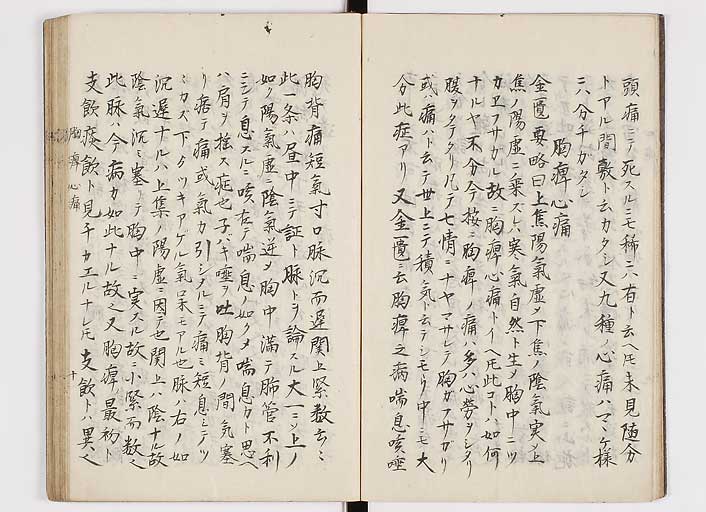 頭痛ニテ死スルニモ稀ニ六右ト云ヘ𪜈未見随分
トアル間敷ト云カタシ又九種ノ心痛ハマヽケ様
ニ六分チガタシ
胸痺心痛
金匱要略曰上焦陽氣虚メ下焦ノ陰氣実メ上
焦ノ陽虚ニ乗ス六寒氣自然ト生メ胸中ニツ
カエフサガル故ニ胸痺心痛トイヘ𪜈此コトハ如何
ナルヤ不分今按ニ胸痺ノ痛ハ多ハ心勞ヲシタリ
腹ヲタテタリ凡テ七情ニナヤマサレテ胸ガフサガリ
或ハ痛ハト云テ世上ニテ積気ト云テシモリ中ニモ大
分此症アリ 又金匱ニ云胸痺之病喘息咳唾
胸背痛短氣寸口脉沉而遅関上緊数云々
此一条ハ昼中ニテ証ト脉トヲ論スル大一ニメ上ノ
如ク陽氣虚ニ陰氣逆メ胸中満テ肺管不利
ニシテ息スルニ咳在テ喘息ノ如クメ喘息カト思ヘ
ハ肩ヲ揺ス症也子バキ唾ヲ吐胸背ノ間気塞
リ痞テ痛或気カ引シブルニテ痛ミ短息ミテツ
ミカズ下ヨツキアゲル氣呆モアル也脉ハ右ノ如
沉遅ナルハ上焦ノ陽虚ニ因テ也関上ハ陰ナル故
陰氣沉ミ塞リテ胸中ニ実スル故ニ小緊而数メ
此脉ハ今病カ如此ナル故也又胸痺ノ最初ト
支飲痰飲ト見チカエルナレ𪜈支飲トハ異ヘ
胸痺心痛
十